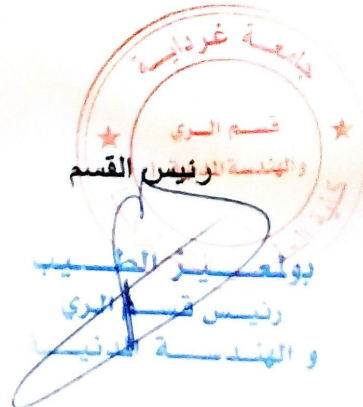 جامعة غرداية
قسم الري
والهندسة المدنية
رئيس القسم
بولمعيز الطيب
رئيس قسم الري
و الهندسة المدنية